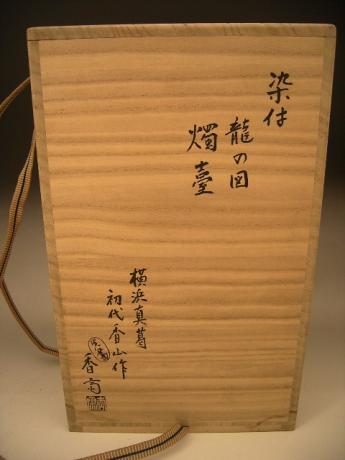 染付
龍の図
燭臺
横浜真葛
初代香山作
香斎